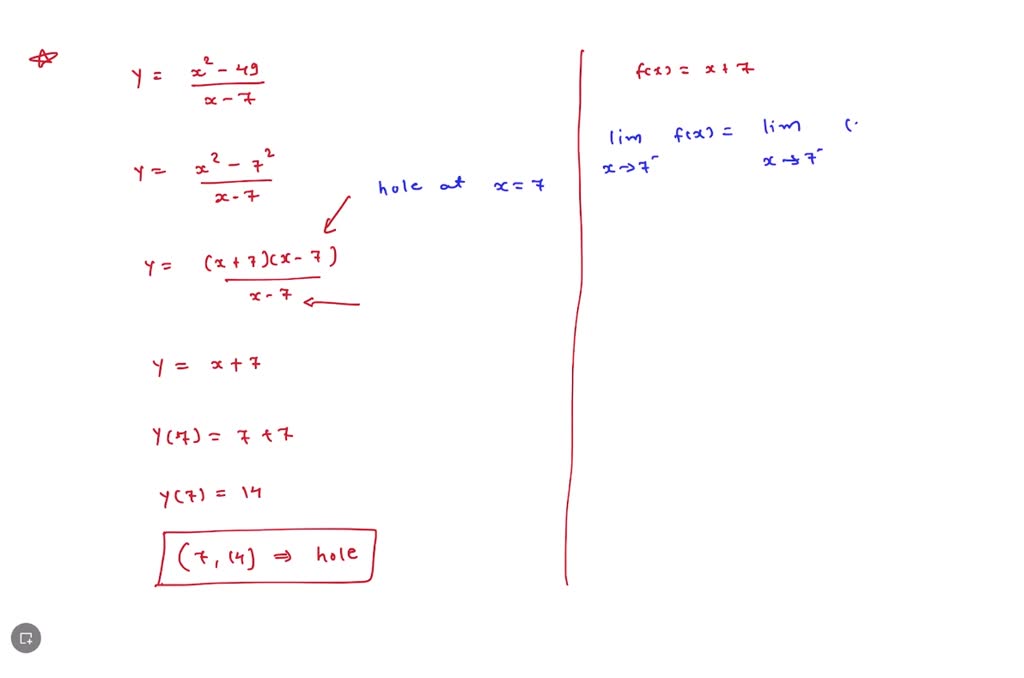 y = x² - 49 / x - 7
y = x² - 7² / x - 7
hole at x = 7
y = (x + 7)(x - 7) / x - 7
y = x + 7
y(7) = 7 + 7
y(7) = 14
(7, 14) ⇒ hole
f(x) = x + 7
lim x→7⁻ f(x) = lim x→7⁻ (